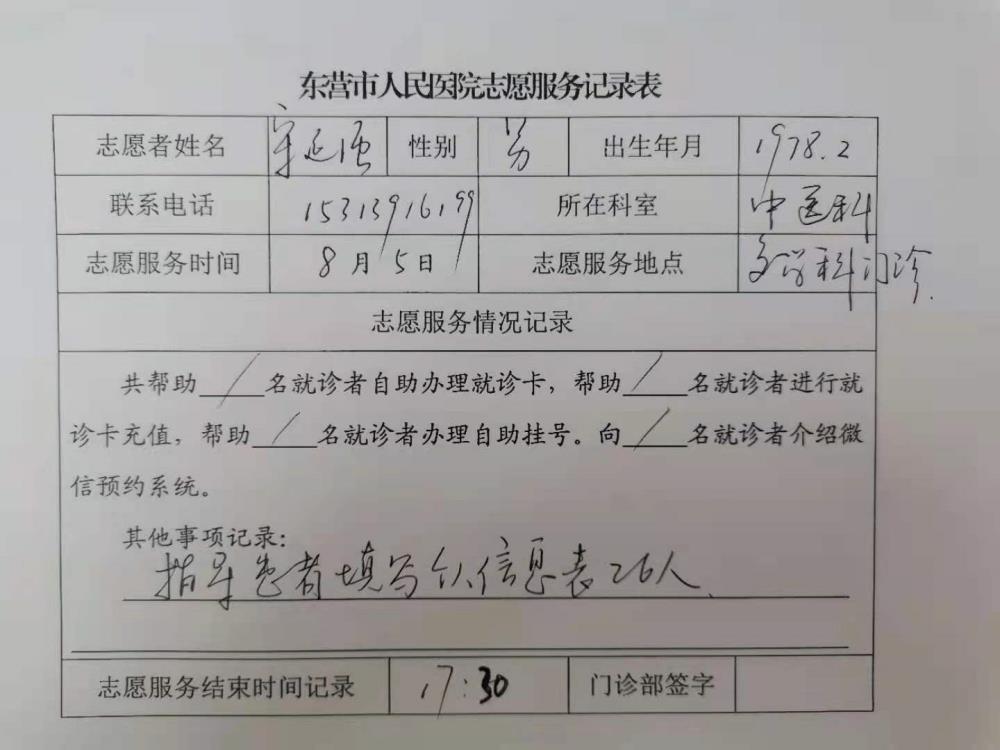 东营市人民医院志愿服务记录表
志愿者姓名 延强 性别 男 出生年月 1978.2
联系电话 15313916199 所在科室 中医科
志愿服务时间 8月5日 志愿服务地点 多学科门诊.
志愿服务情况记录
共帮助 / 名就诊者自助办理就诊卡，帮助 / 名就诊者进行就
诊卡充值，帮助 / 名就诊者办理自助挂号。向 / 名就诊者介绍微
信预约系统。
其他事项记录：
指导患者填写个人信息表26人.
志愿服务结束时间记录 17:30 门诊部签字